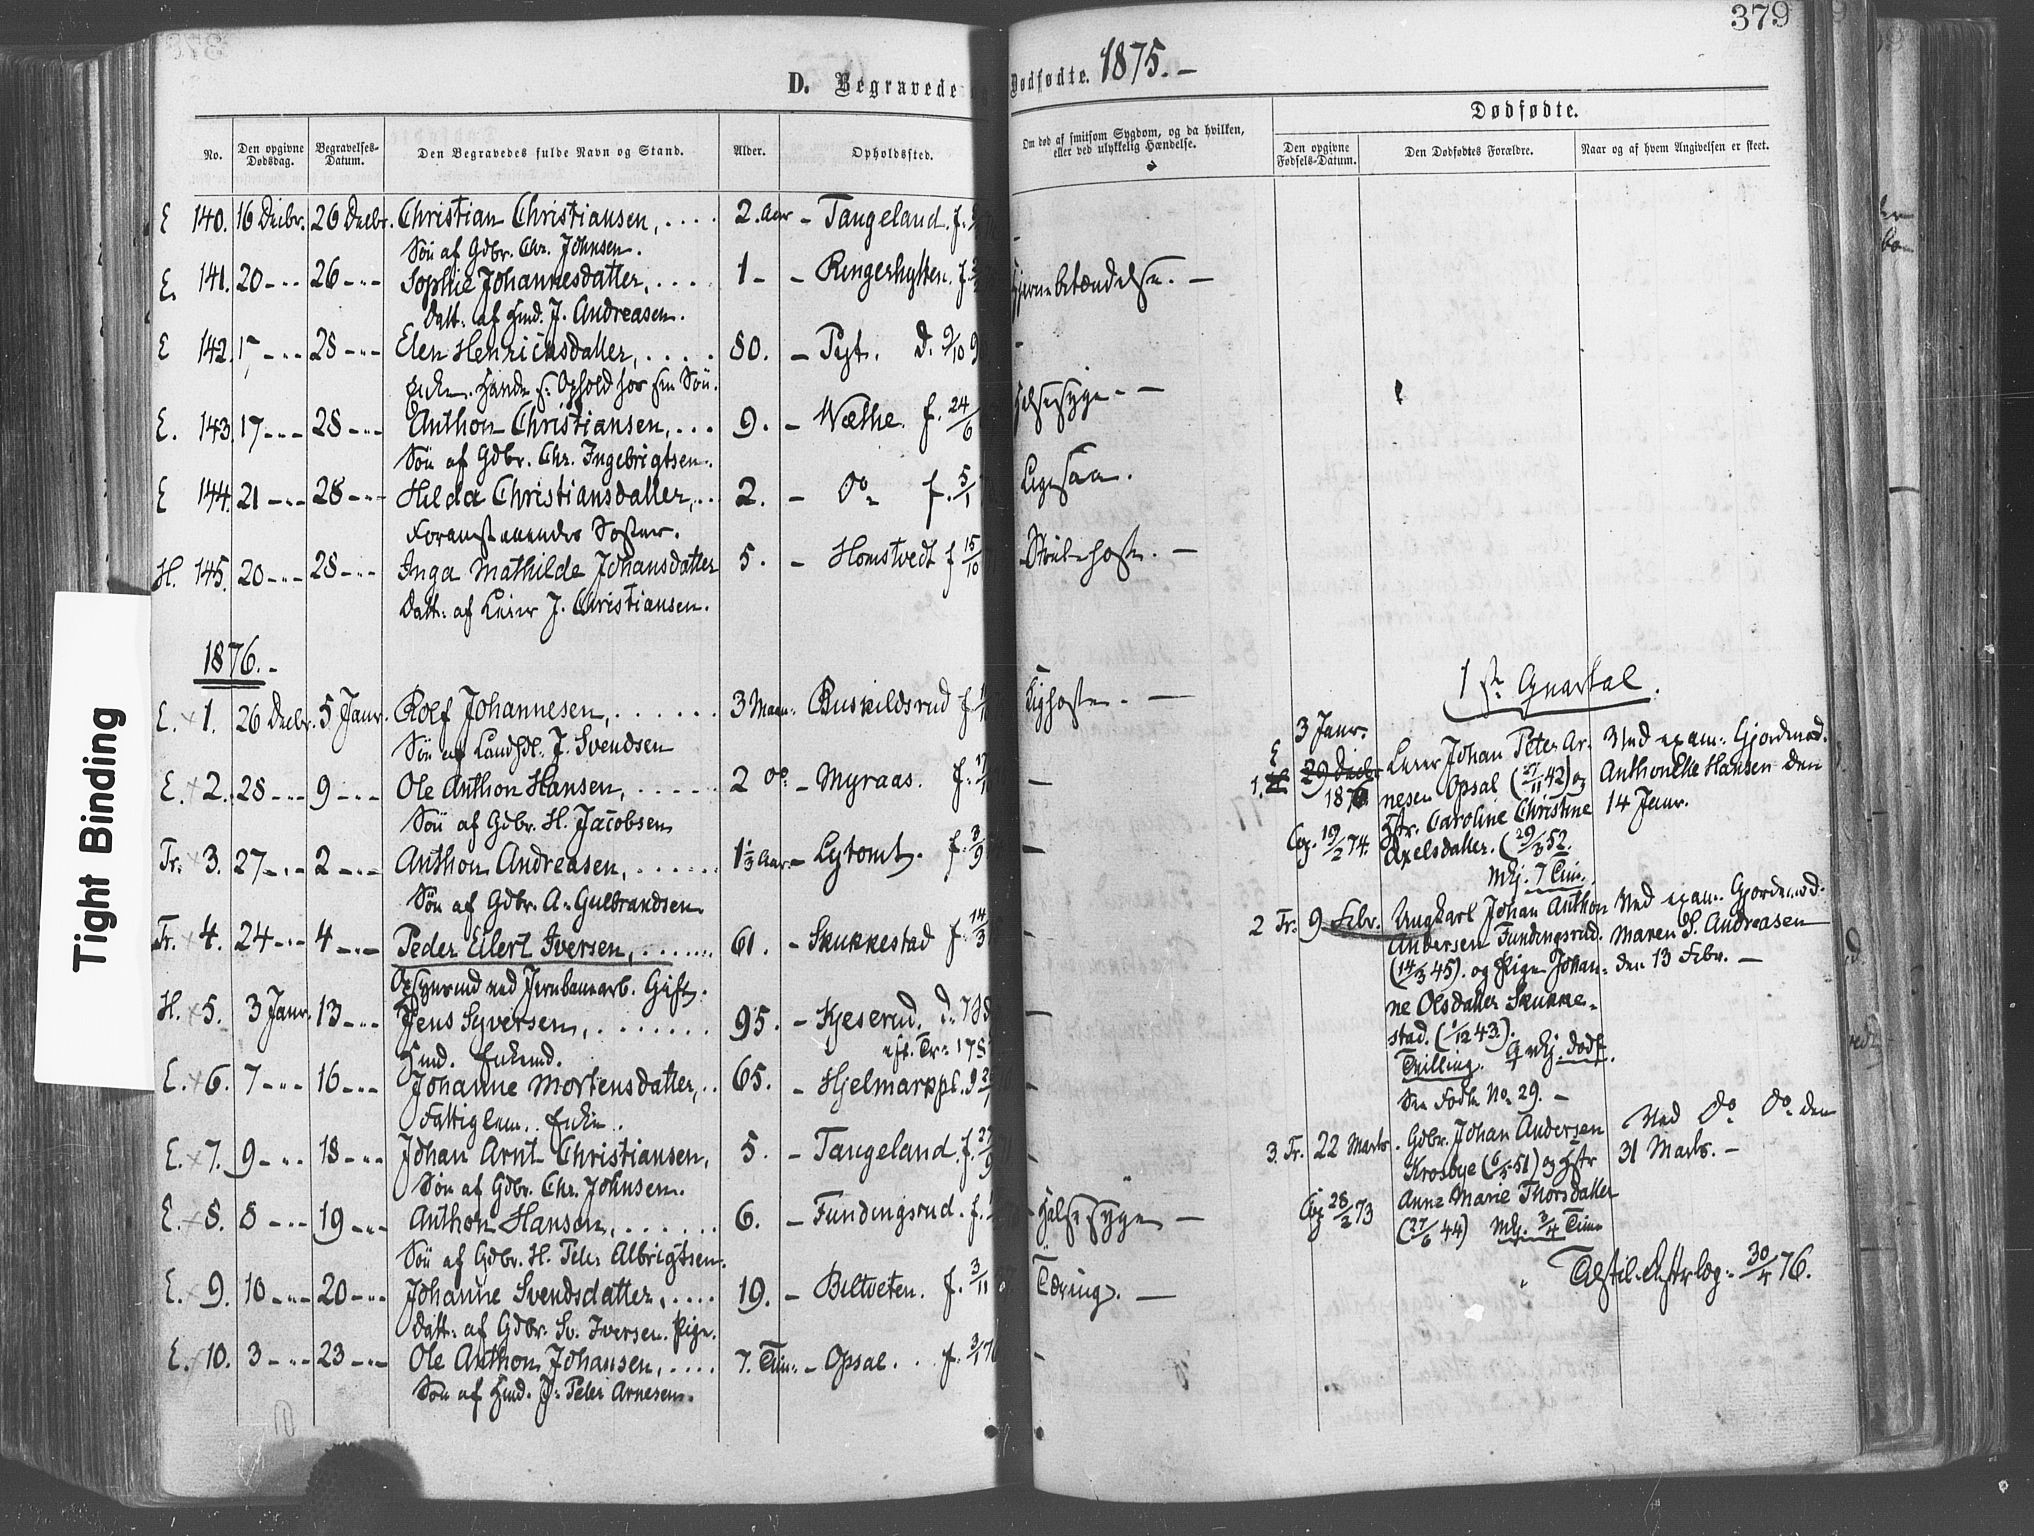 379
D. Begravede
Dødfødte. 1875. –
No.
Den opgivne Dødsdag.
Begravelses-Datum.
Den Begravedes fulde Navn og Stand.
Alder.
Opholdssted.
Om død af smitsom Sygdom, og da hvilken, eller ved ulykkelig Hændelse.
Dødfødte.
Den opgivne Fødsels-Datum.
Den Dødfødtes Forældre.
Naar og af hvem Angivelsen er skeet.
E 140. 16 Decbr. 26 Decbr. Christian Christiansen, .... 2. Aar – Tangeland. f.
Søn af Gdbr. Chr. Johnsen.
E. 141. 20 -"- 26 -"- Sophie Johannesdatter, .... 1 - – Ringerhytten. f. Hjernebetændelse. –
Datt. af Hmd. J. Andreasen.
E 142. 17 -"- 28 -"- Elen Henricksdatter, .... 80. – Pyt. D. 9/10
Enke. Havde s. Ophold hos sin Søn.
E. 143. 17 -"- 28 -"- Anthon Christiansen, ... 9. – Wæthe. f. 24/6 Halssyge. –
Søn af Gdbr. Chr. Ingebrigtsen.
E 144. 21 -"- 28 -"- Hilda Christiansdatter, .. 2. – Do f. 5/1 Ligesaa.
Foranstaaendes Søster.
H. 145. 20 -"- 28 -"- Inga Mathilde Johansdatter 5. – Homstvedt f 15/10 Strubehoste. –
Datt. af Leier J. Christiansen.
1876. -
E. 1. 26 Decbr. 5 Janr. Rolf Johannesen, ...... 3 Maan. Buskildsrud f Kighoste. –
Søn af Landhdl. J. Svendsen
E. 2. 28 -"- 9 -"- Ole Anthon Hansen, ..... 2 Do – Myraas. f. 17 –
Søn af Gdbr. H. Jacobsen
Tr. 3. 27 -"- 2 -"- Anthon Andreasen, ...... 1 1/3 Aar – Lytomt. f. 3/9 –
Søn af Gdbr. A. Gulbrandsen.
Tr. 4. 24 -"- 4 -"- Peder Elert Iversen, ...... 61. – Skukkestad f. 14/3 –
Opsynsmd ved Jernbanearb. Gift.
H. 5. 3 Janr. 13 -"- Jens Syversen, ....... 95. – Kjeserud. d. –
Hmd. Enkemd.
E. 6. 7 -"- 16 -"- Johanne Mortensdatter, .. 65. – Hjelmarkpl. –
Fattiglem. Enke.
E. 7. 9 -"- 18 -"- Johan Arnt Christiansen, 5. – Tangeland. f. 27/9 –
Søn af Gdbr. Chr. Johnsen.
E. 8. 8 -"- 19 -"- Anthon Hansen, ...... 6. – Fundingsrud. f. Halssyge –
Søn af Gdbr. H. Peter Albrigtsen.
E. 9. 10 -"- 20 -"- Johanne Svendsdatter, .... 19. – Biltveten. f. 3/11 Tæring. –
Datt. af Gdbr. Sv. Iversen. Pige.
E. 10. 3 -"- 23 -"- Ole Anthon Johansen, .... 7. Tim. – Opsal. . f. 3/1 76 –
Søn af Hmd. J. Peter Arnesen.
1ste Quartal.
3 Janr.
1. E 29 Decbr 1876 Leier Johan Peter Ar-
nesen Opsal (27/11 42) og
Hstr. Caroline Christine
Cop. 19/2 74. Axelsdatter. (29/3 52.
Mkj. 7 Tim.
Ved exam. Gjordemod.
Anthonette Hansen den
14 Janr.
2 Tr. 9 Febr. Ungkarl Johan Anthon
Andersen Fundingsrud.
(14/3 45). og Pige Johan-
ne Olsdatter Skukke-
stad. (1/12 43).
Tvilling. Qvkj. dødf.
See Fødte No. 29. –
Ved exam. Gjordemod.
Maren S. Andreasen
den 13 Febr. –
3. Tr. 22 Marts. Gdbr. Johan Andersen
Krosbye (6/5 51) og Hstr
Cop 28/2 73 Anne Marie Thorsdatter
(27/6 44) Mkj. 3/4 Time
Ved Do Do den
31 Marts. –
Tight Binding